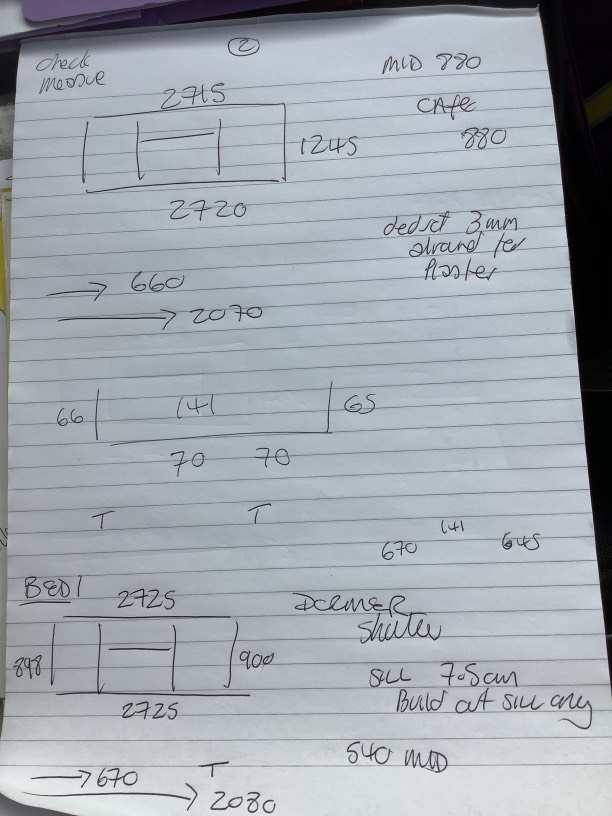 2
check
measure
MID 880
2715
CAFE
880
1245
2720
deduct 3mm
around for
Plaster
→ 660
→ 2070
66 141 65
70 70
T T
670 141 645
BED 1
2725
DORMER
Shutter
898 900
SILL 7.5cm
Build out sill only
2725
540 MID
→ 670 T
→ 2080